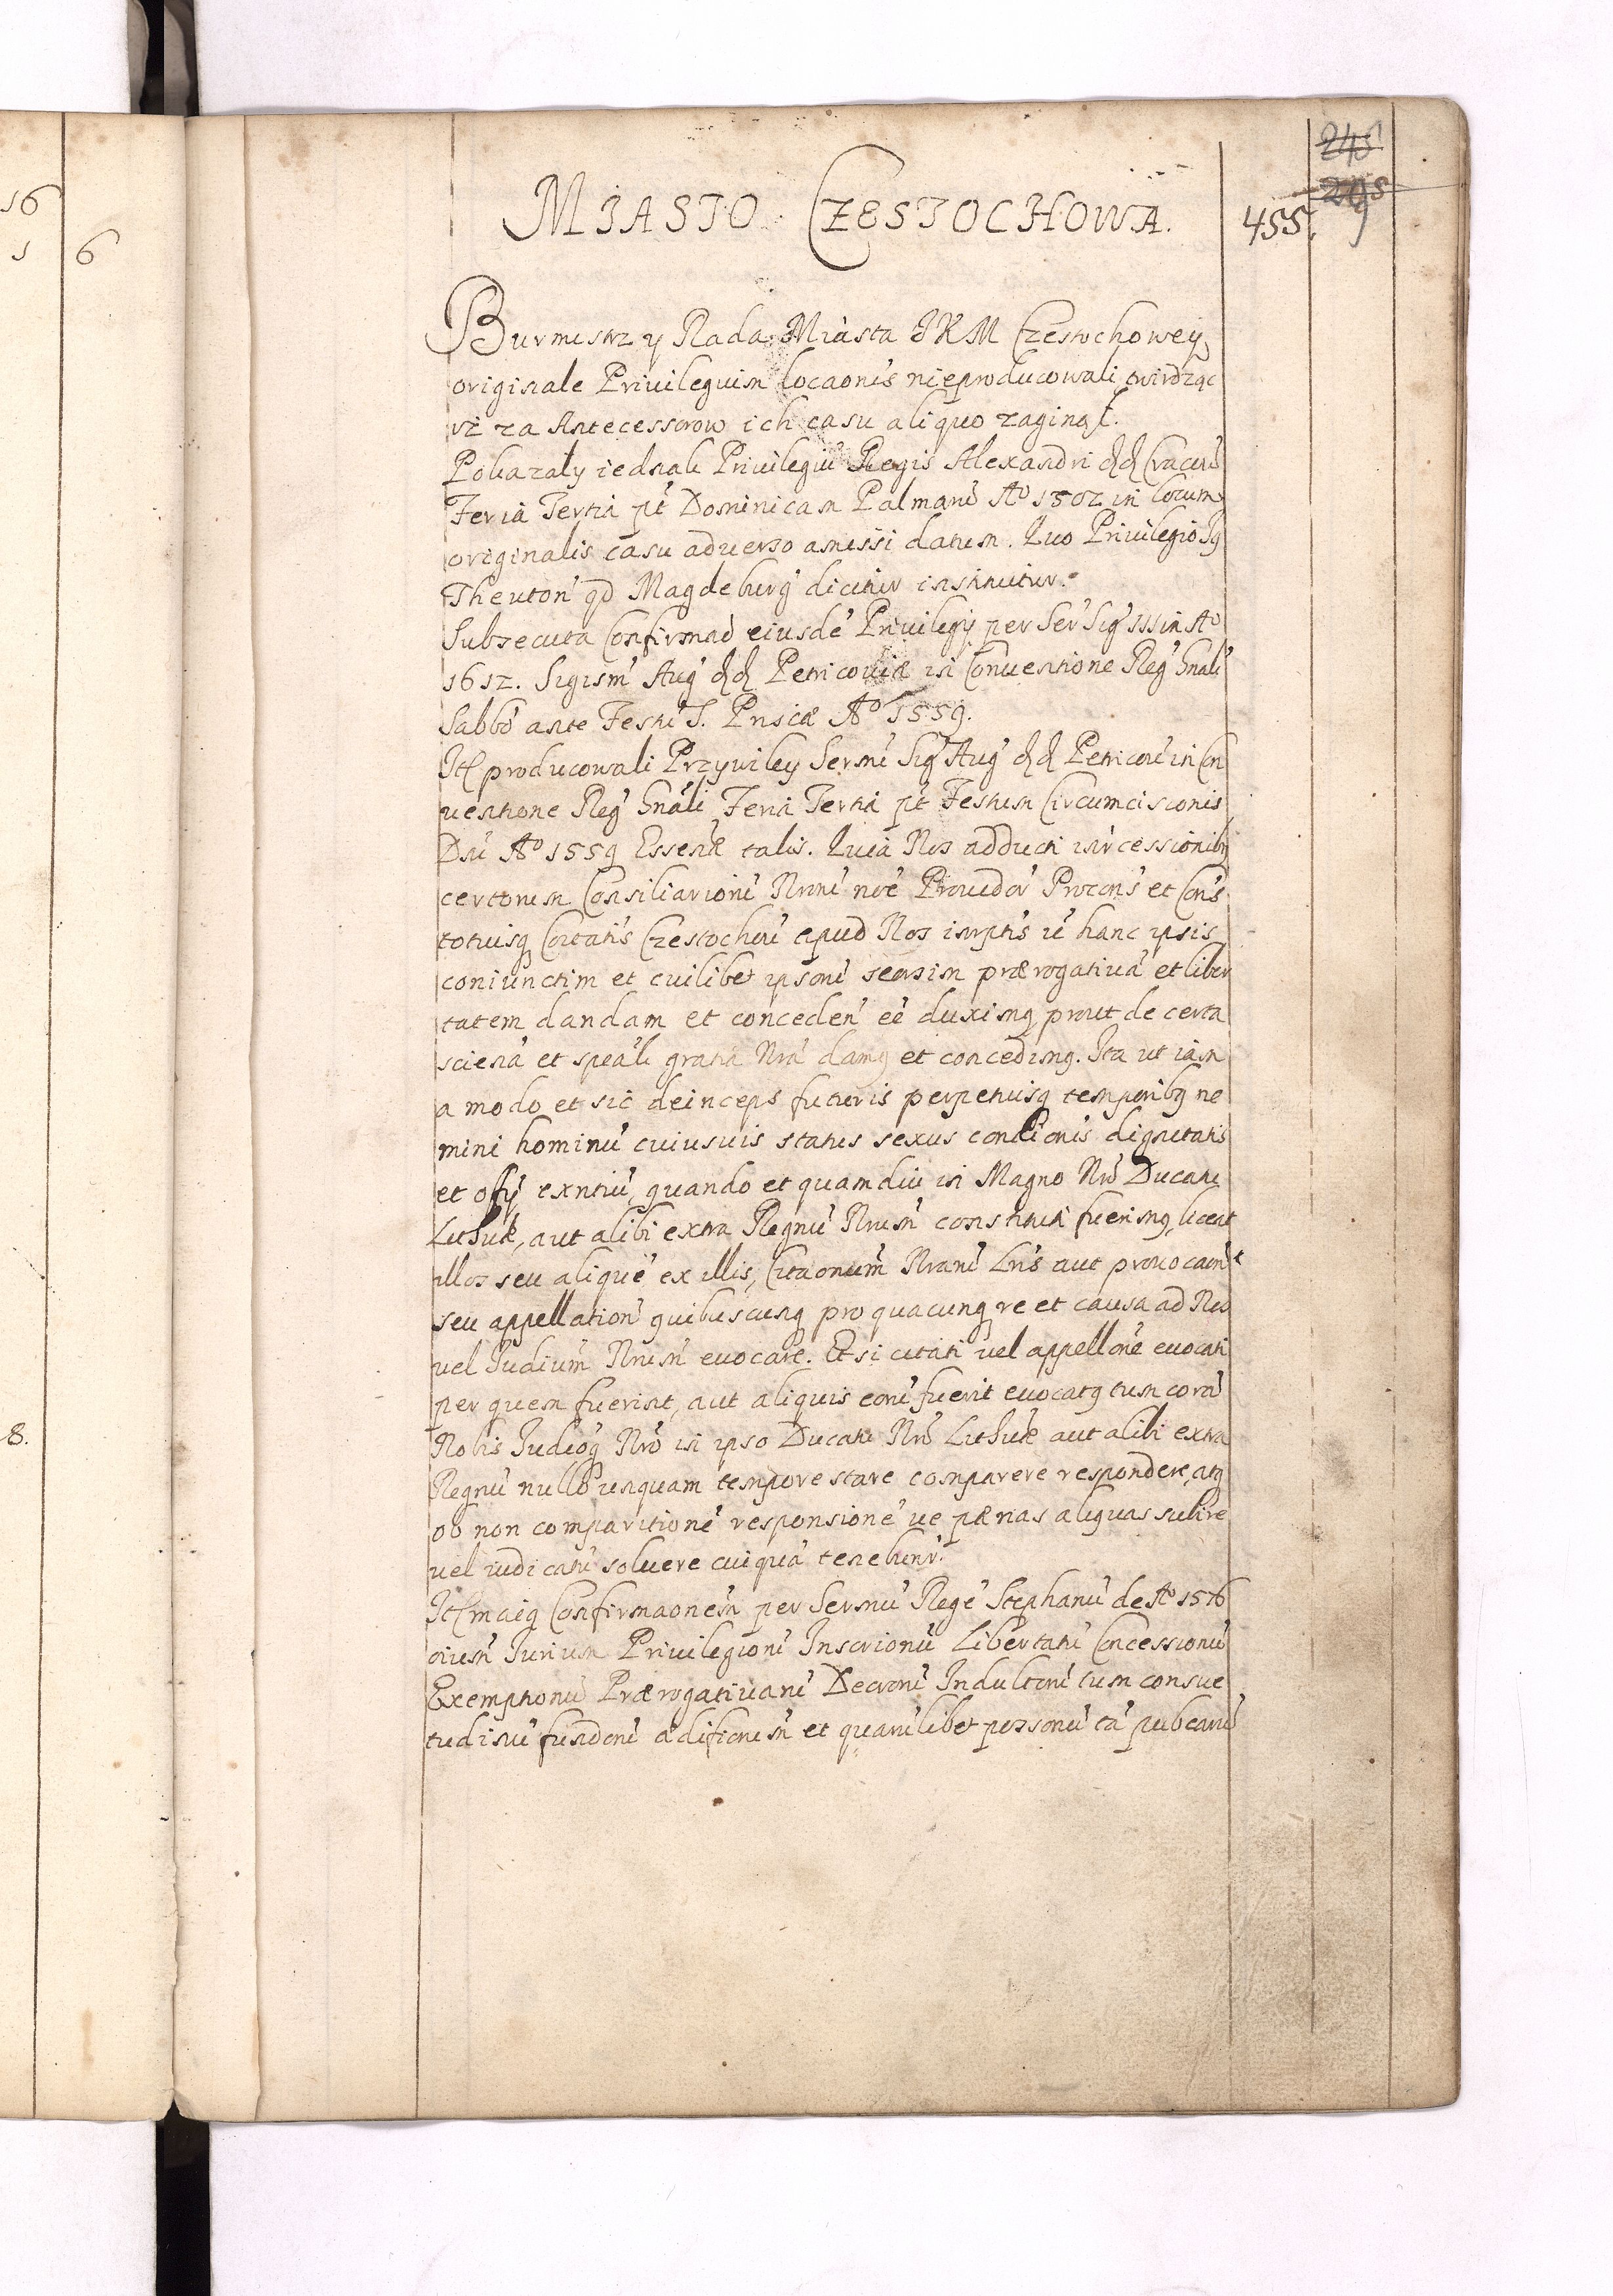 16
1 6
8.
245
295
455.
MIASTO CZESTOCHOWA.
Burmistrz y Rada Miasta JKM Czestochowey
originale Priuilegium locaonis nieproducowali twirdząc
iż za Antecessorow ich casu aliquo zaginął.
Pokazały iednak Priuilegiū Regis Alexandri dd Cracoū
Feria Tertia pt Dominicam Palmarū Ao 1502 in locum
originalis casu aduerso amissi datum. Quo Priuilegio Ig
Theuton' qd Magdeburg' dicitur instituitur.
Subsecuta Confirmao eiusde' Priuilegij per Ser' Sig' III in Ao
1612. Sigism' Aug' dd Petricouiæ in Conuentione Reg' Gnali'
Sabbo ante Festū S. Priscæ Ao 1559.
Itē producowali Przywiley Sermi Sig' Aug' dd Petricoū in Con
uentione Reg' Gnáli Feria Tertia pt Festum Circumcisionis
Dni Ao 1559 Essentiæ talis. Quia Nos adducti intrcessionibg
certorum Consiliariorū Nrorū noe Prouidor' Procons' et Cons'
totiusq Coitatis Czestochoū apud Nos inrptis ut hanc ipsis
coniunctim et cuilibet ipsorū seorsim prærogatiuā et liber
tatem dandam et conceden' ee duximg prout de certa
scientiā et speāli gratia Nra damg et concedimg. Ita ut iam
a modo et sic deinceps futuris perpetuisq temporibg ne
mini hominū cuiusuis status sexus condionis dignitatis
et offij exntiū, quando et quamdiu in Magno Nro Ducatu
Lithuæ, aut alibi extra Regnū Nrum constituti fuerimg, liceat
illos seu alique' ex illis, Citaonum Nrarū Lris aut prouocaōn
seu appellation' quibuscunq pro quacunq re et causa ad Nos
vel Iudium Nrum euocare. Et si citati vel appellone euocati
per quem fuerint, aut aliquis eorū fuerit euocatg tum corā
Nobis Iudioq Nro in ipso Ducatu Nro Lithuæ aut alibi extra
Regnū nullo unquam tempore stare comparere respondere, atq
ob non comparitione' responsione' ue pænas aliquas subire
uel iudicatū soluere cuiquā tenebunt'.
Itē maią Confirmaonem per Sermū Rege' Stephanū de Ao 1576
oium Iurium Priuilegiorū Inscrionū Libertatū Concessionū
Exemptionū Prærogatiuarū Decrorū Indultorū tum consue
tudinū fundorū ædificiorum et quarūlibet personū tā pubcarū